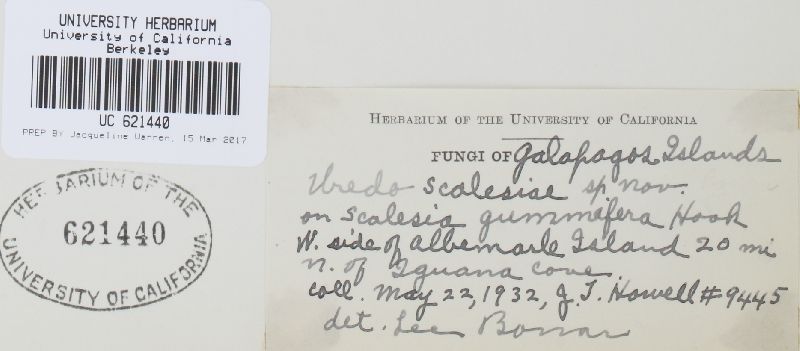 UNIVERSITY HERBARIUM
University of California
Berkeley
UC 621440
PREP BY Jacqueline Warren, 15 Mar 2017
HERBARIUM OF THE
621440
UNIVERSITY OF CALIFORNIA
HERBARIUM OF THE UNIVERSITY OF CALIFORNIA
FUNGI OF Galapagos Islands
Uredo Scalesiae sp. nov.
on Scalesia gummifera Hook
W. side of Albemarle Island 20 mi
n. of Iguana Cove.
coll. May 22, 1932, J. T. Howell # 9445
det. Lee Bonar